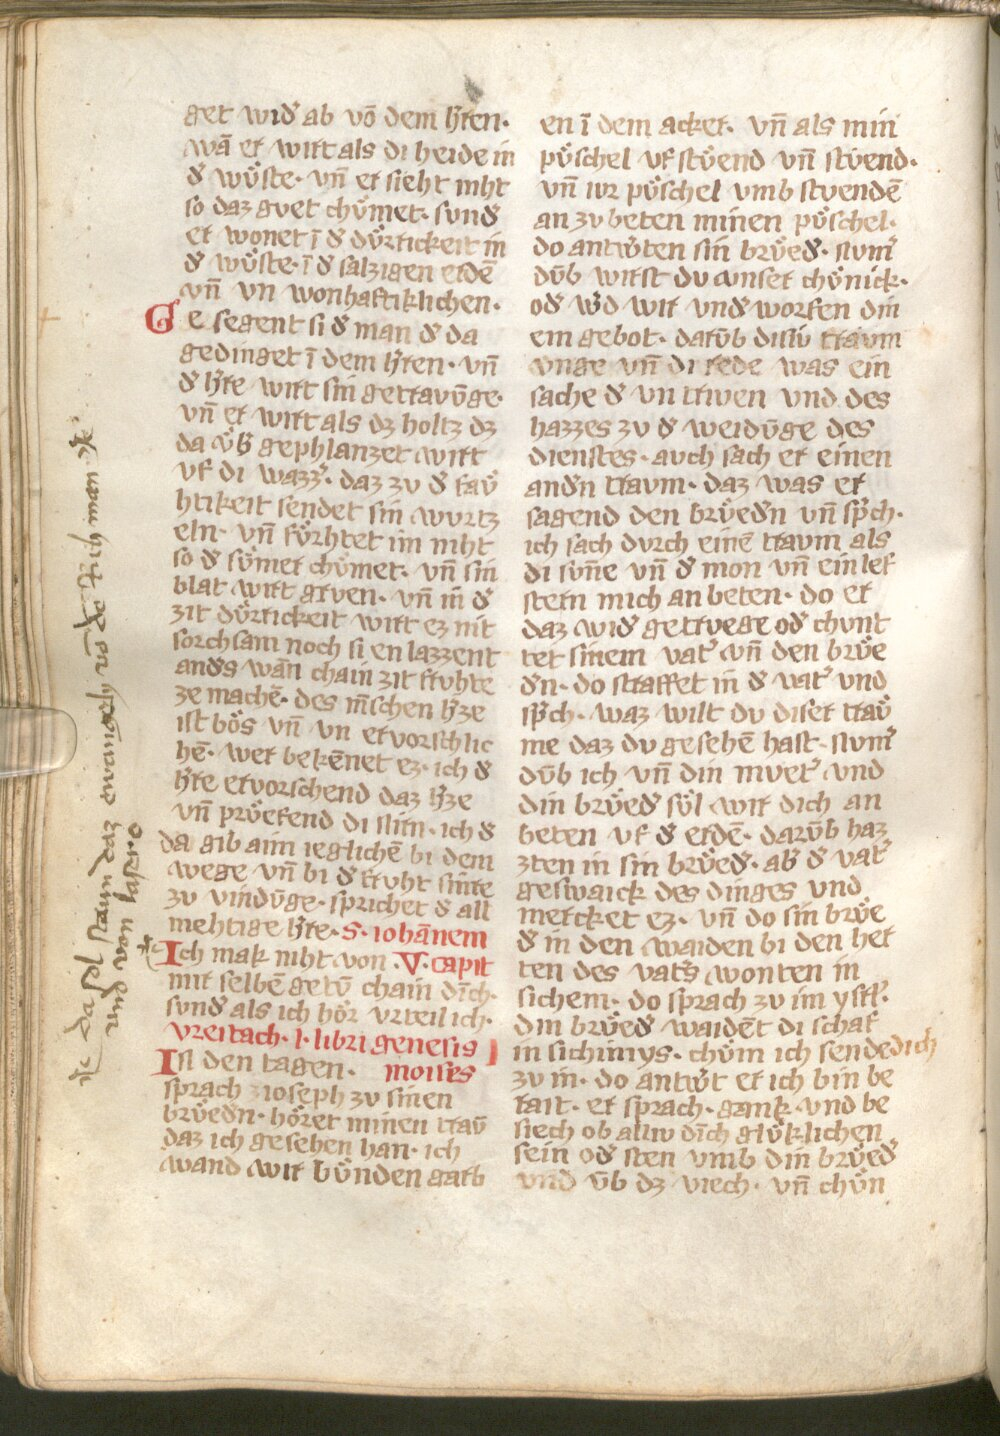 get wid᷑ ab vō dem h᷑ren·
wā er wirt als di heide in
d᷑ wuͤste· vn̄ er sieht niht
so daz guet chuͤmet· sund᷑
er wonet ī d᷑ duͤrrickeit in
d᷑ wuͤste· ī d᷑ salzigen erdē
vn̄ vn wonhaftiklichen·
Ge segent si d᷑ man d᷑ da
gedinget ī dem h᷑ren· vn̄
d᷑ h᷑re wirt sin getravūge·
vn̄ er wirt als dz holtz dz
da vͤb᷑ gephlanzet wirt
vf di wazz᷑· daz zv d᷑ favͤ
htikeit sendet sin wurtz
eln· vn̄ fuͤrhtet im niht
so d᷑ suͤmer chuͤmet· vn̄ sin
blat wirt gruen· vn̄ in̄ d᷑
zit duͤrrickeit wirt ez nit
sorchsam noch si en lazzent
and᷑s wān chain zit fruhte
ze machē· des mēschen h᷑ze
ist boͤs vn̄ vn ervorschlic
hē· wer bekēnet ez· ich d᷑
h᷑re ervorschend daz h᷑ze
vn̄ pruͤefend di slim· ich d᷑
da gib aim ieglichē bi dem
wege vn̄ bi d᷑ fruht sinre
zv vindūge· sprichet d᷑ all
mehtige h᷑re· S· iohānem
Ich mak niht von · V· capit
mir selbē getū chain dīch·
sund᷑ als ich hoͤr vrteil ich·
vreitach· l· libri genesis
In den tagen· moises
sprach zioseph zv sinen
bruͤed᷑n· hoͤret minen travͤ
daz ich gesehen han· ich
wand wir buͤnden garb
en ī dem acker· vn̄ als min
puͤschel vf stuͤend vn̄ stuend·
vn̄ iur puͤschel vmb stuendē
an zv beten minen puͤschel·
do antw᷑ten sin bruͤed᷑· num᷑
dūb wirst du unser chuͤnick·
od᷑ w᷑d wir vnd᷑ worfen din
em gebot· darūb disiu traum
unge vn̄ di rede was ein
sache d᷑ vn triwen vnd des
hazzes zv d᷑ weidūge des
dienstes· auch sach er einen
and᷑n traum· daz was er
sagend den bruͤed᷑n vn̄ sp᷑ch·
ich sach durch einē traum als
di sūne vn̄ d᷑ mon vn̄ ein lef
stern mich an beten· do er
daz wid᷑ getruege od᷑ chunt
tet sinem vat᷑ vn̄ den bruͤe
d᷑n· do straffet in d᷑ vat᷑ vnd
sp᷑ch· waz wilt du diser travͤ
me daz du gesehē hast· num᷑
dūb ich vn̄ din muet᷑ vnd
din bruͤed᷑ suͤl wir dich an
beten vf d᷑ erdē· darūb haz
zten in sin bruͤed᷑· ab᷑ d᷑ vat᷑
geswaick des dinges vnd
mercket ez· vn̄ do sin bruͤe
d᷑ in den waiden bi den her
ten des vat᷑s wonten in
sichem· do sprach zv im ysrl᷑·
din bruͤed᷑ waidēt di schaf
in sichimys· chuͤm ich sende dich
zv in· do antw᷑t er ich bin be
rait· er sprach· gank· vnd be
siech ob alliu dīch gluͤklichen
sein od᷑ sten vmb din bruͤed᷑
vnd ūb dz viech· vn̄ chuͤn